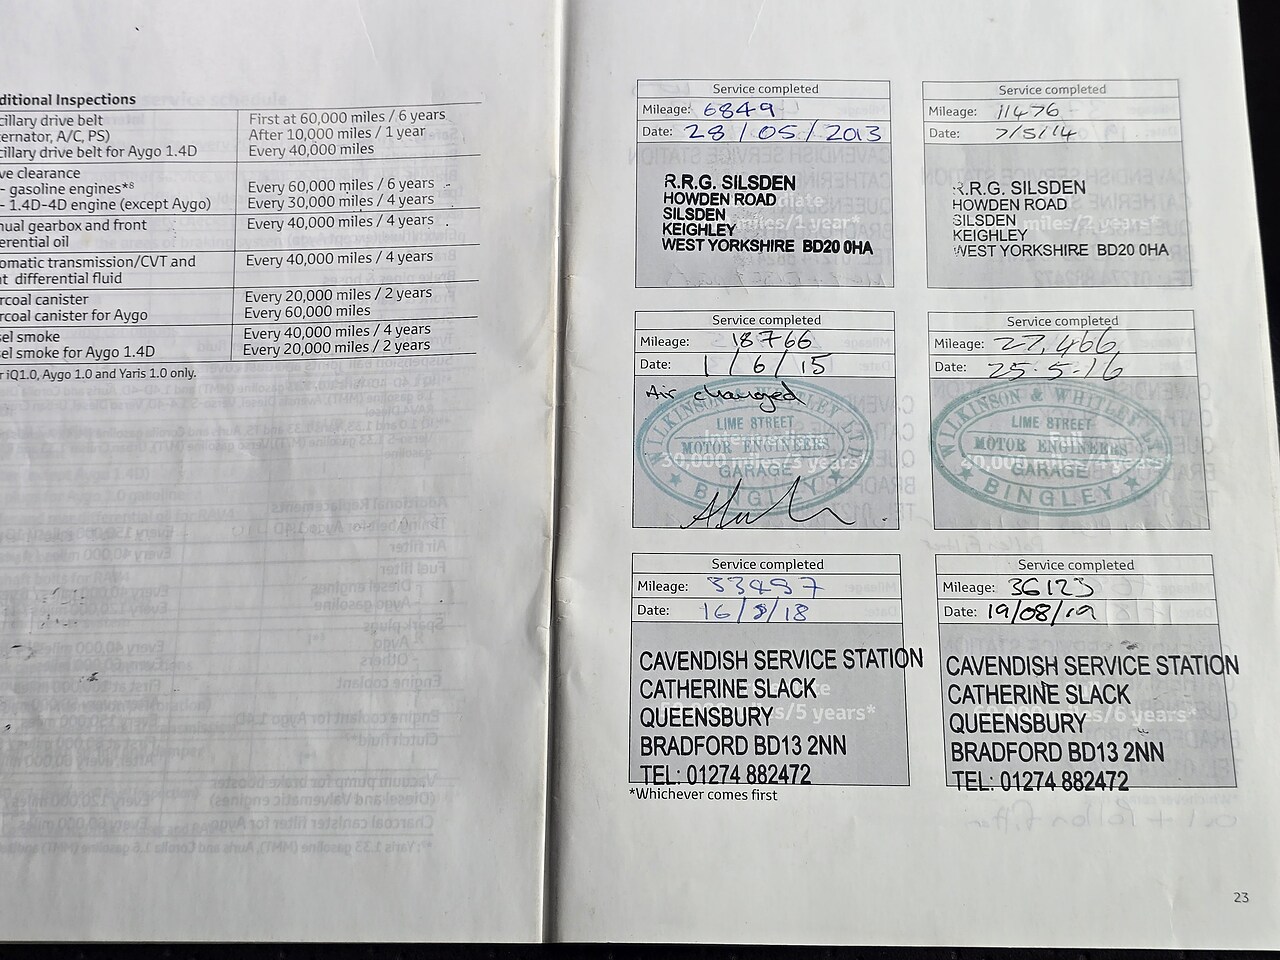 ditional Inspections
cillary drive belt First at 60,000 miles / 6 years
ternator, A/C, PS) After 10,000 miles / 1 year
cillary drive belt for Aygo 1.4D Every 40,000 miles
ve clearance
- gasoline engines*8 Every 60,000 miles / 6 years
- 1.4D-4D engine (except Aygo) Every 30,000 miles / 4 years
nual gearbox and front Every 40,000 miles / 4 years
erential oil
omatic transmission/CVT and Every 40,000 miles / 4 years
nt differential fluid
rcoal canister Every 20,000 miles / 2 years
rcoal canister for Aygo Every 60,000 miles
sel smoke Every 40,000 miles / 4 years
sel smoke for Aygo 1.4D Every 20,000 miles / 2 years
r iQ1.0, Aygo 1.0 and Yaris 1.0 only.
Service completed
Mileage: 6849
Date: 28/05/2013
R.R.G. SILSDEN
HOWDEN ROAD
SILSDEN
KEIGHLEY
WEST YORKSHIRE BD20 0HA
miles/1 year*
Service completed
Mileage: 11476
Date: 7/5/14
R.R.G. SILSDEN
HOWDEN ROAD
SILSDEN
KEIGHLEY
WEST YORKSHIRE BD20 0HA
miles/2 years*
Service completed
Mileage: 18766
Date: 1/6/15
Air changed
WILKINSON & WHITLEY LTD
LIME STREET
MOTOR ENGINEERS
GARAGE
BINGLEY
30,000 miles/3 years*
Service completed
Mileage: 27,466
Date: 25-5-16
WILKINSON & WHITLEY LTD
LIME STREET
MOTOR ENGINEERS
GARAGE
BINGLEY
40,000 miles/4 years*
Service completed
Mileage: 33497
Date: 16/8/18
CAVENDISH SERVICE STATION
CATHERINE SLACK
QUEENSBURY
BRADFORD BD13 2NN
TEL: 01274 882472
/5 years*
Service completed
Mileage: 36123
Date: 19/08/19
CAVENDISH SERVICE STATION
CATHERINE SLACK
QUEENSBURY
BRADFORD BD13 2NN
TEL: 01274 882472
miles/6 years*
*Whichever comes first
23